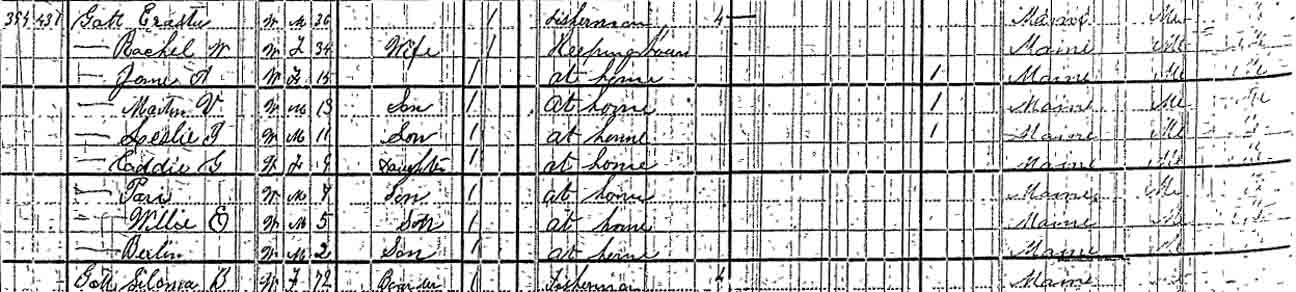 384 437 Gott Erastus W M 36 / Fisherman 4 Maine Me
— Rachel W W F 34 Wife / Keeping house Maine Me
— A W F 15 / at home / Maine Me
— Martin V W M 13 Son / At home / Maine Me
— Leslie W M 11 Son / at home / Maine Me
— Eddie G W F 9 Daughter / at home Maine Me
— W M 7 Son / at home Maine Me
— Willie E W M 5 Son / at home Maine Me
— Berlin W M 2 Son / at home Maine Me
Gott B W F 72 Boarder / Fisherman 4 Maine